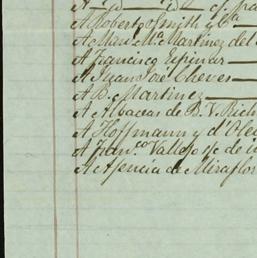 A Roberto Smith y Ca
A Man. Ma. Martinez del
A Francisco Espinar
A Juan José Cheves
A B. Martinez
A Albaceas de B. V. Rich
A Hoffmann y d'Ole
A Fran.co Vallejo s/c de
A Agencia de Miraflor